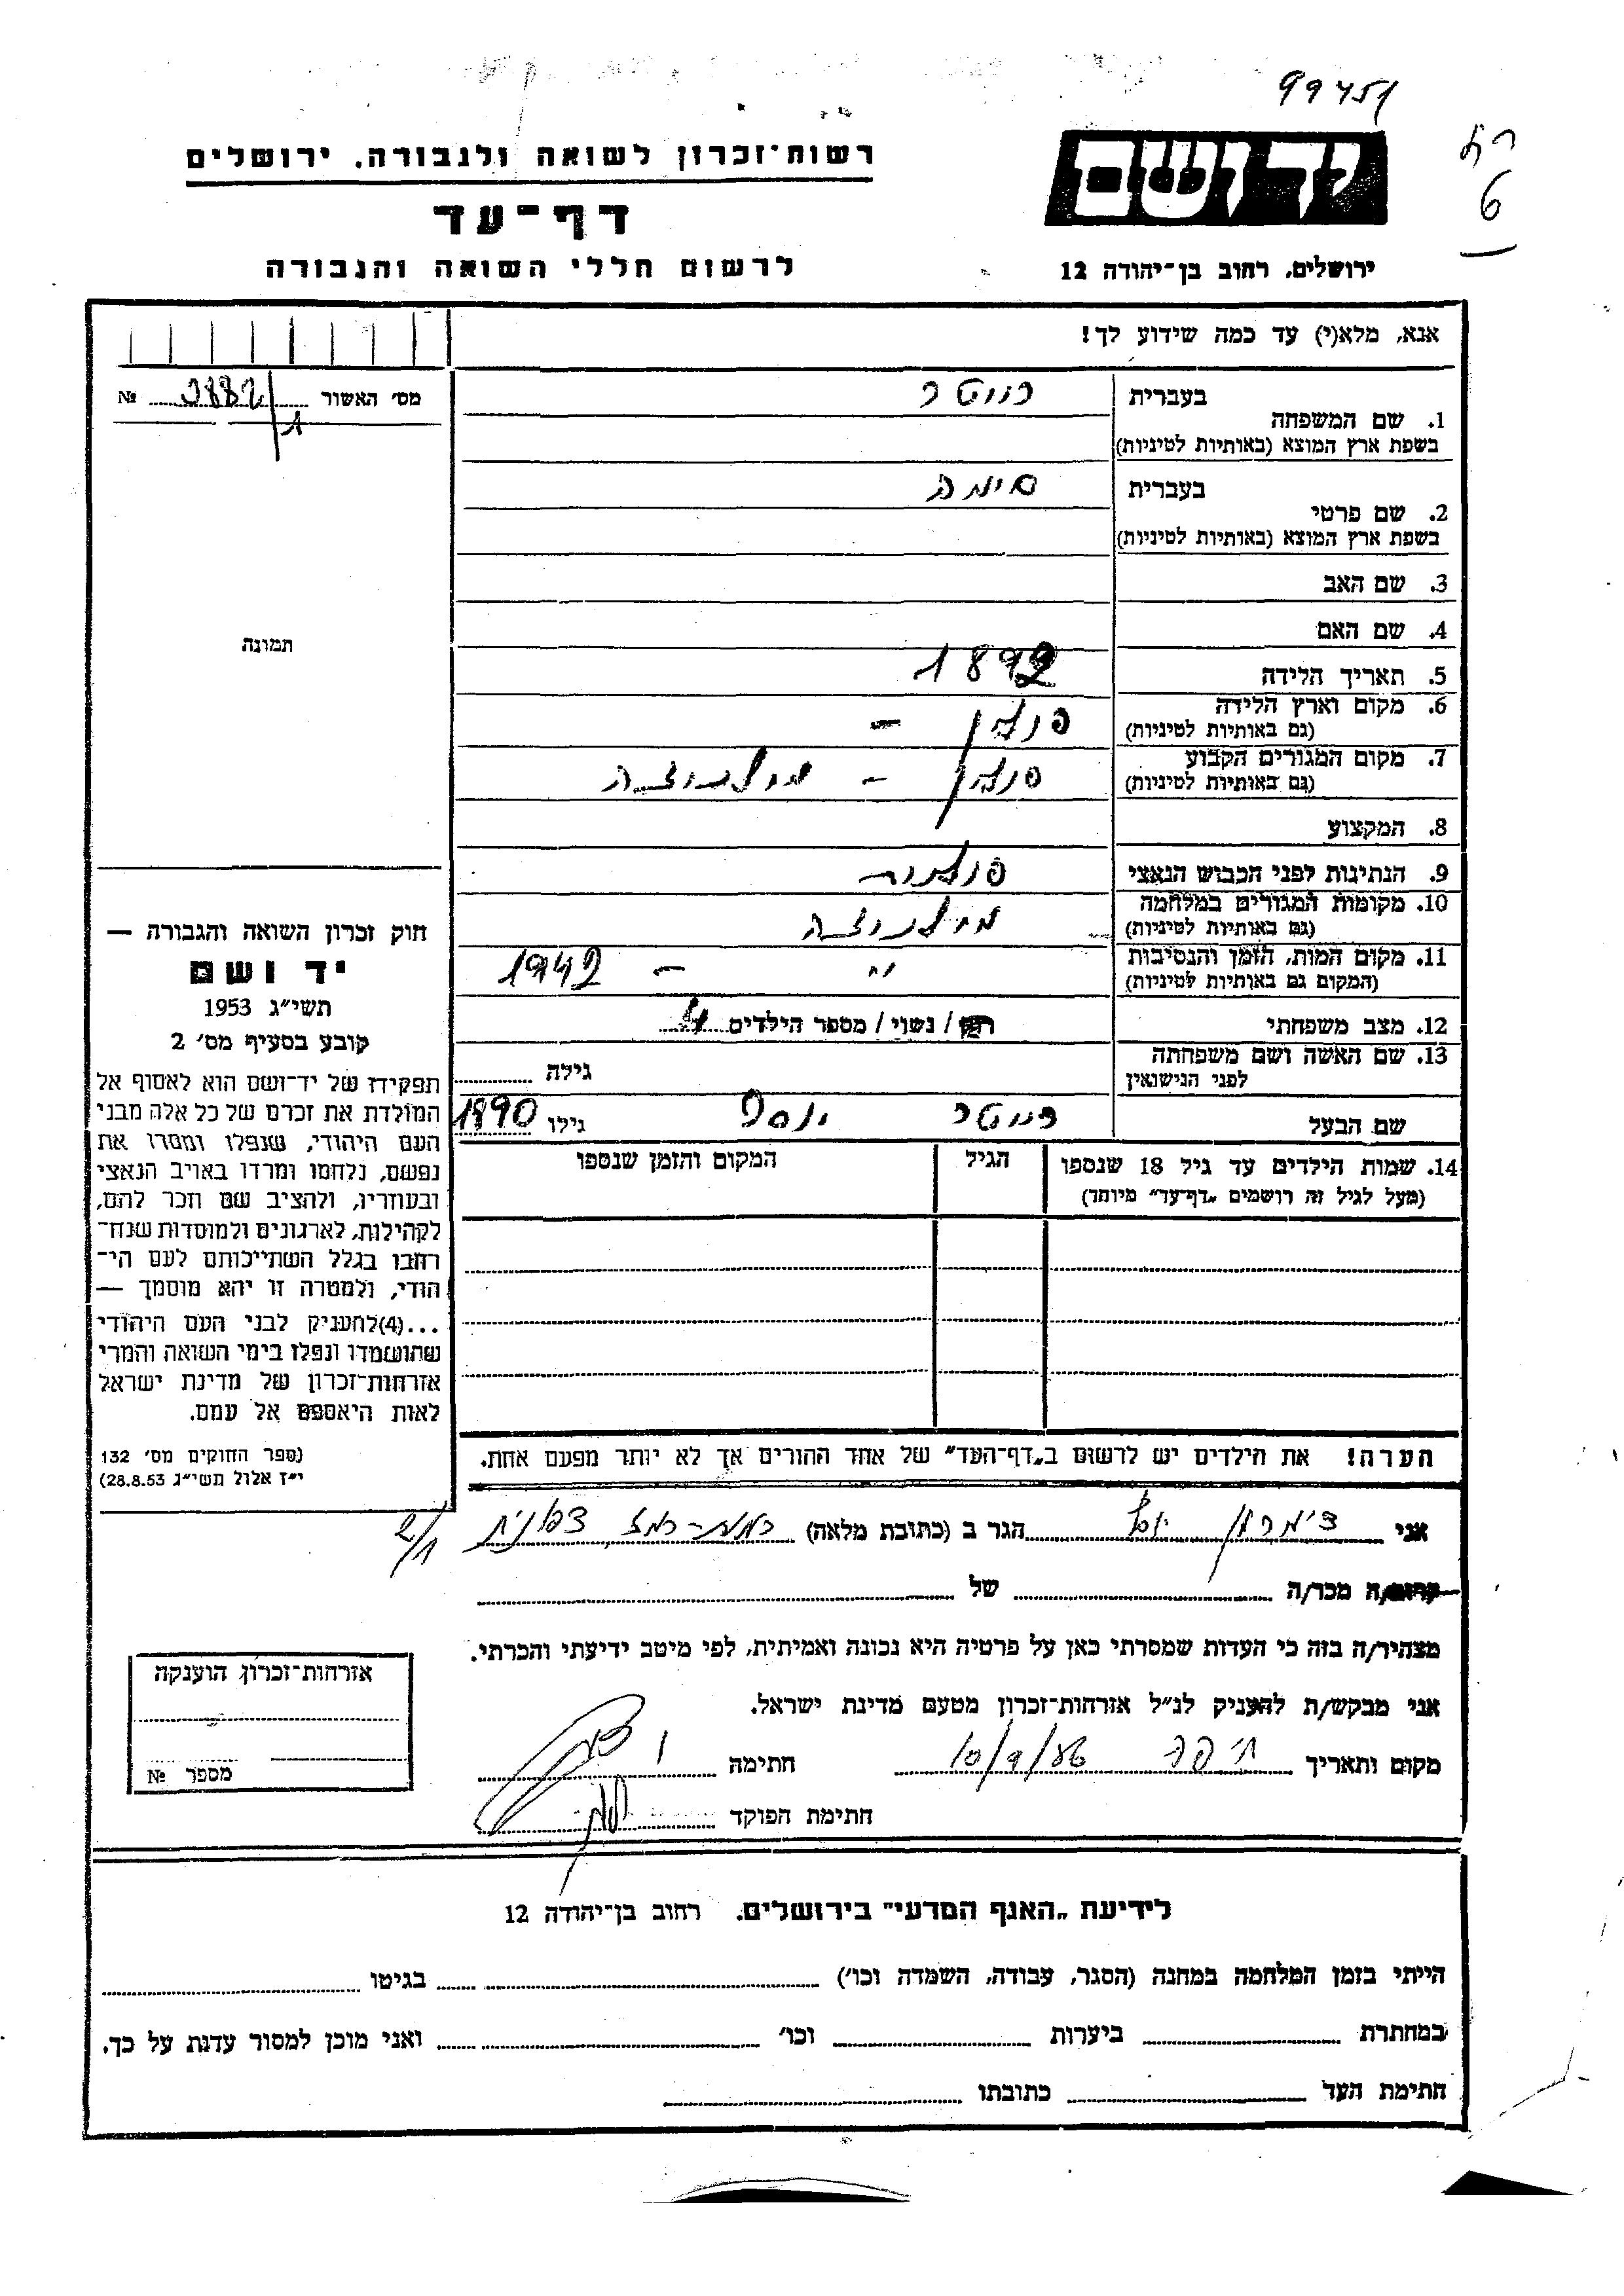 99451
רמ
6
יד ושם
רשות־זכרון לשואה ולגבורה, ירושלים
דף־עד
לרשום חללי השואה והגבורה
ירושלים, רחוב בן־יהודה 12
אנא, מלא(י) עד כמה שידוע לך!
מס׳ האשור № 3882/1
בעברית
1. שם המשפחה
בשפת ארץ המוצא (באותיות לטיניות)
בעברית סימה
2. שם פרטי
בשפת ארץ המוצא (באותיות לטיניות)
3. שם האב
4. שם האם
5. תאריך הלידה 1892
6. מקום וארץ הלידה פולין –
(גם באותיות לטיניות)
7. מקום המגורים הקבוע פולין –
(גם באותיות לטיניות)
8. המקצוע
9. הנתינות לפני הכבוש הנאצי פולנית
10. מקומות המגורים במלחמה
(גם באותיות לטיניות)
11. מקום המות, הזמן והנסיבות ״ – 1942
(המקום גם באותיות לטיניות)
12. מצב משפחתי רווק / נשוי / מספר הילדים
13. שם האשה ושם משפחתה גילה
לפני הנישואין
שם הבעל יוסף גילו 1890
14. שמות הילדים עד גיל 18 שנספו הגיל המקום והזמן שנספו
(מעל לגיל זה רושמים „דף־עד״ מיוחד)
הערה! את הילדים יש לרשום ב„דף־העד״ של אחד ההורים אך לא יותר מפעם אחת.
תמונה
חוק זכרון השואה והגבורה —
יד ושם
תשי״ג 1953
קובע בסעיף מס׳ 2
תפקידו של יד־ושם הוא לאסוף אל
המולדת את זכרם של כל אלה מבני
העם היהודי, שנפלו ומסרו את
נפשם, נלחמו ומרדו באויב הנאצי
ובעוזריו, ולהציב שם וזכר להם,
לקהילות, לארגונים ולמוסדות שנח־
רחבו בגלל השתייכותם לעם הי־
הודי, ולמטרה זו יהא מוסמך —
...(4)להעניק לבני העם היהודי
שהושמדו ונפלו בימי השואה והמרי
אזרחות־זכרון של מדינת ישראל
לאות היאספם אל עמם.
(ספר החוקים מס׳ 132
י״ז אלול תשי״ג 28.8.53)
אני הגר ב (כתובת מלאה)
קרוב/ה מכר/ה של
מצהיר/ה בזה כי העדות שמסרתי כאן על פרטיה היא נכונה ואמיתית, לפי מיטב ידיעתי והכרתי.
אני מבקש/ת להעניק לנ״ל אזרחות־זכרון מטעם מדינת ישראל.
מקום ותאריך חיפה חתימה
חתימת הפוקד
אזרחות־זכרון הוענקה
מספר №
לידיעת „האגף המדעי״ בירושלים. רחוב בן־יהודה 12
הייתי בזמן המלחמה במחנה (הסגר, עבודה, השמדה וכו׳) בגיטו
במחתרת ביערות וכו׳ ואני מוכן למסור עדות על כך.
חתימת העד כתובתו